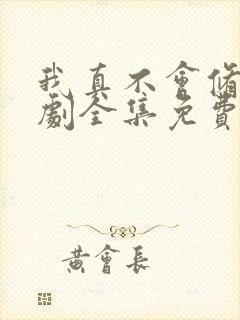 我真不會脩
劇全集免費
黃會長